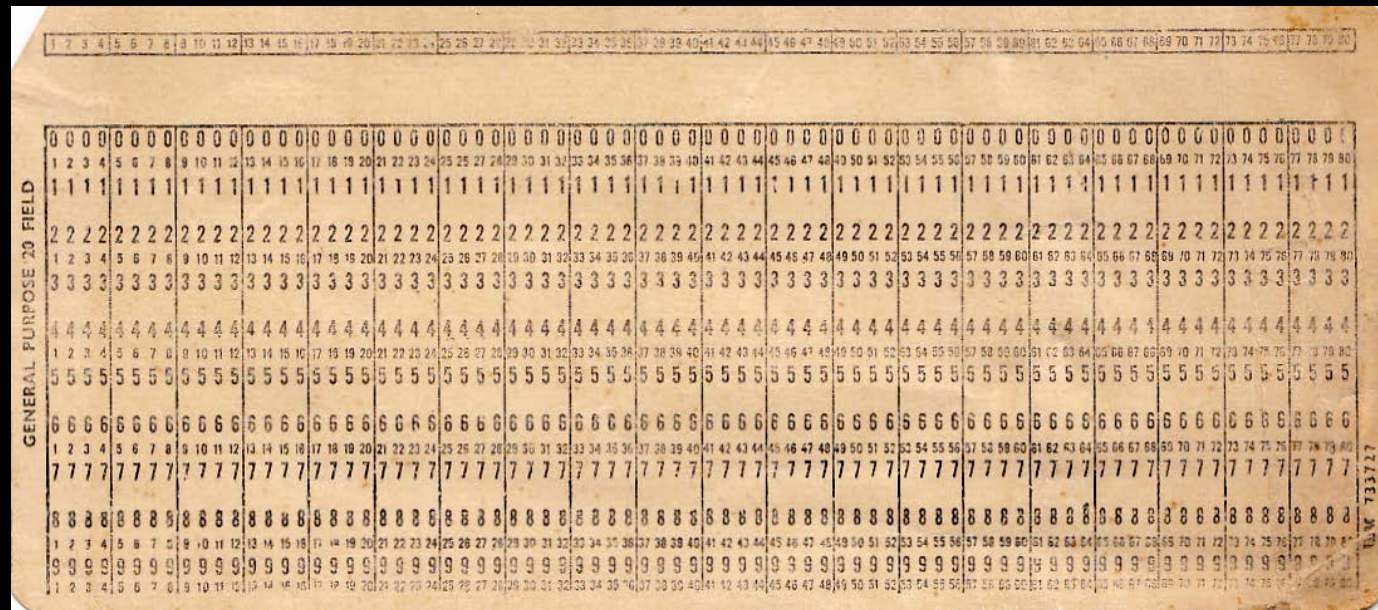 1 2 3 4 5 6 7 8 9 10 11 12 13 14 15 16 17 18 19 20 21 22 23 24 25 26 27 28 29 30 31 32 33 34 35 36 37 38 39 40 41 42 43 44 45 46 47 48 49 50 51 52 53 54 55 56 57 58 59 60 61 62 63 64 65 66 67 68 69 70 71 72 73 74 75 76 77 78 79 80
0 0 0 0 0 0 0 0 0 0 0 0 0 0 0 0 0 0 0 0 0 0 0 0 0 0 0 0 0 0 0 0 0 0 0 0 0 0 0 0 0 0 0 0 0 0 0 0 0 0 0 0 0 0 0 0 0 0 0 0 0 0 0 0 0 0 0 0 0 0 0 0 0 0 0 0 0 0 0 0
1 2 3 4 5 6 7 8 9 10 11 12 13 14 15 16 17 18 19 20 21 22 23 24 25 26 27 28 29 30 31 32 33 34 35 36 37 38 39 40 41 42 43 44 45 46 47 48 49 50 51 52 53 54 55 56 57 58 59 60 61 62 63 64 65 66 67 68 69 70 71 72 73 74 75 76 77 78 79 80
1 1 1 1 1 1 1 1 1 1 1 1 1 1 1 1 1 1 1 1 1 1 1 1 1 1 1 1 1 1 1 1 1 1 1 1 1 1 1 1 1 1 1 1 1 1 1 1 1 1 1 1 1 1 1 1 1 1 1 1 1 1 1 1 1 1 1 1 1 1 1 1 1 1 1 1 1 1 1 1
2 2 2 2 2 2 2 2 2 2 2 2 2 2 2 2 2 2 2 2 2 2 2 2 2 2 2 2 2 2 2 2 2 2 2 2 2 2 2 2 2 2 2 2 2 2 2 2 2 2 2 2 2 2 2 2 2 2 2 2 2 2 2 2 2 2 2 2 2 2 2 2 2 2 2 2 2 2 2 2
1 2 3 4 5 6 7 8 9 10 11 12 13 14 15 16 17 18 19 20 21 22 23 24 25 26 27 28 29 30 31 32 33 34 35 36 37 38 39 40 41 42 43 44 45 46 47 48 49 50 51 52 53 54 55 56 57 58 59 60 61 62 63 64 65 66 67 68 69 70 71 72 73 74 75 76 77 78 79 80
3 3 3 3 3 3 3 3 3 3 3 3 3 3 3 3 3 3 3 3 3 3 3 3 3 3 3 3 3 3 3 3 3 3 3 3 3 3 3 3 3 3 3 3 3 3 3 3 3 3 3 3 3 3 3 3 3 3 3 3 3 3 3 3 3 3 3 3 3 3 3 3 3 3 3 3 3 3 3 3
4 4 4 4 4 4 4 4 4 4 4 4 4 4 4 4 4 4 4 4 4 4 4 4 4 4 4 4 4 4 4 4 4 4 4 4 4 4 4 4 4 4 4 4 4 4 4 4 4 4 4 4 4 4 4 4 4 4 4 4 4 4 4 4 4 4 4 4 4 4 4 4 4 4 4 4 4 4 4 4
1 2 3 4 5 6 7 8 9 10 11 12 13 14 15 16 17 18 19 20 21 22 23 24 25 26 27 28 29 30 31 32 33 34 35 36 37 38 39 40 41 42 43 44 45 46 47 48 49 50 51 52 53 54 55 56 57 58 59 60 61 62 63 64 65 66 67 68 69 70 71 72 73 74 75 76 77 78 79 80
5 5 5 5 5 5 5 5 5 5 5 5 5 5 5 5 5 5 5 5 5 5 5 5 5 5 5 5 5 5 5 5 5 5 5 5 5 5 5 5 5 5 5 5 5 5 5 5 5 5 5 5 5 5 5 5 5 5 5 5 5 5 5 5 5 5 5 5 5 5 5 5 5 5 5 5 5 5 5 5
6 6 6 6 6 6 6 6 6 6 6 6 6 6 6 6 6 6 6 6 6 6 6 6 6 6 6 6 6 6 6 6 6 6 6 6 6 6 6 6 6 6 6 6 6 6 6 6 6 6 6 6 6 6 6 6 6 6 6 6 6 6 6 6 6 6 6 6 6 6 6 6 6 6 6 6 6 6 6 6
1 2 3 4 5 6 7 8 9 10 11 12 13 14 15 16 17 18 19 20 21 22 23 24 25 26 27 28 29 30 31 32 33 34 35 36 37 38 39 40 41 42 43 44 45 46 47 48 49 50 51 52 53 54 55 56 57 58 59 60 61 62 63 64 65 66 67 68 69 70 71 72 73 74 75 76 77 78 79 80
7 7 7 7 7 7 7 7 7 7 7 7 7 7 7 7 7 7 7 7 7 7 7 7 7 7 7 7 7 7 7 7 7 7 7 7 7 7 7 7 7 7 7 7 7 7 7 7 7 7 7 7 7 7 7 7 7 7 7 7 7 7 7 7 7 7 7 7 7 7 7 7 7 7 7 7 7 7 7 7
8 8 8 8 8 8 8 8 8 8 8 8 8 8 8 8 8 8 8 8 8 8 8 8 8 8 8 8 8 8 8 8 8 8 8 8 8 8 8 8 8 8 8 8 8 8 8 8 8 8 8 8 8 8 8 8 8 8 8 8 8 8 8 8 8 8 8 8 8 8 8 8 8 8 8 8 8 8 8 8
1 2 3 4 5 6 7 8 9 10 11 12 13 14 15 16 17 18 19 20 21 22 23 24 25 26 27 28 29 30 31 32 33 34 35 36 37 38 39 40 41 42 43 44 45 46 47 48 49 50 51 52 53 54 55 56 57 58 59 60 61 62 63 64 65 66 67 68 69 70 71 72 73 74 75 76 77 78 79 80
9 9 9 9 9 9 9 9 9 9 9 9 9 9 9 9 9 9 9 9 9 9 9 9 9 9 9 9 9 9 9 9 9 9 9 9 9 9 9 9 9 9 9 9 9 9 9 9 9 9 9 9 9 9 9 9 9 9 9 9 9 9 9 9 9 9 9 9 9 9 9 9 9 9 9 9 9 9 9 9
1 2 3 4 5 6 7 8 9 10 11 12 13 14 15 16 17 18 19 20 21 22 23 24 25 26 27 28 29 30 31 32 33 34 35 36 37 38 39 40 41 42 43 44 45 46 47 48 49 50 51 52 53 54 55 56 57 58 59 60 61 62 63 64 65 66 67 68 69 70 71 72 73 74 75 76 77 78 79 80
GENERAL PURPOSE 20 FIELD
733727